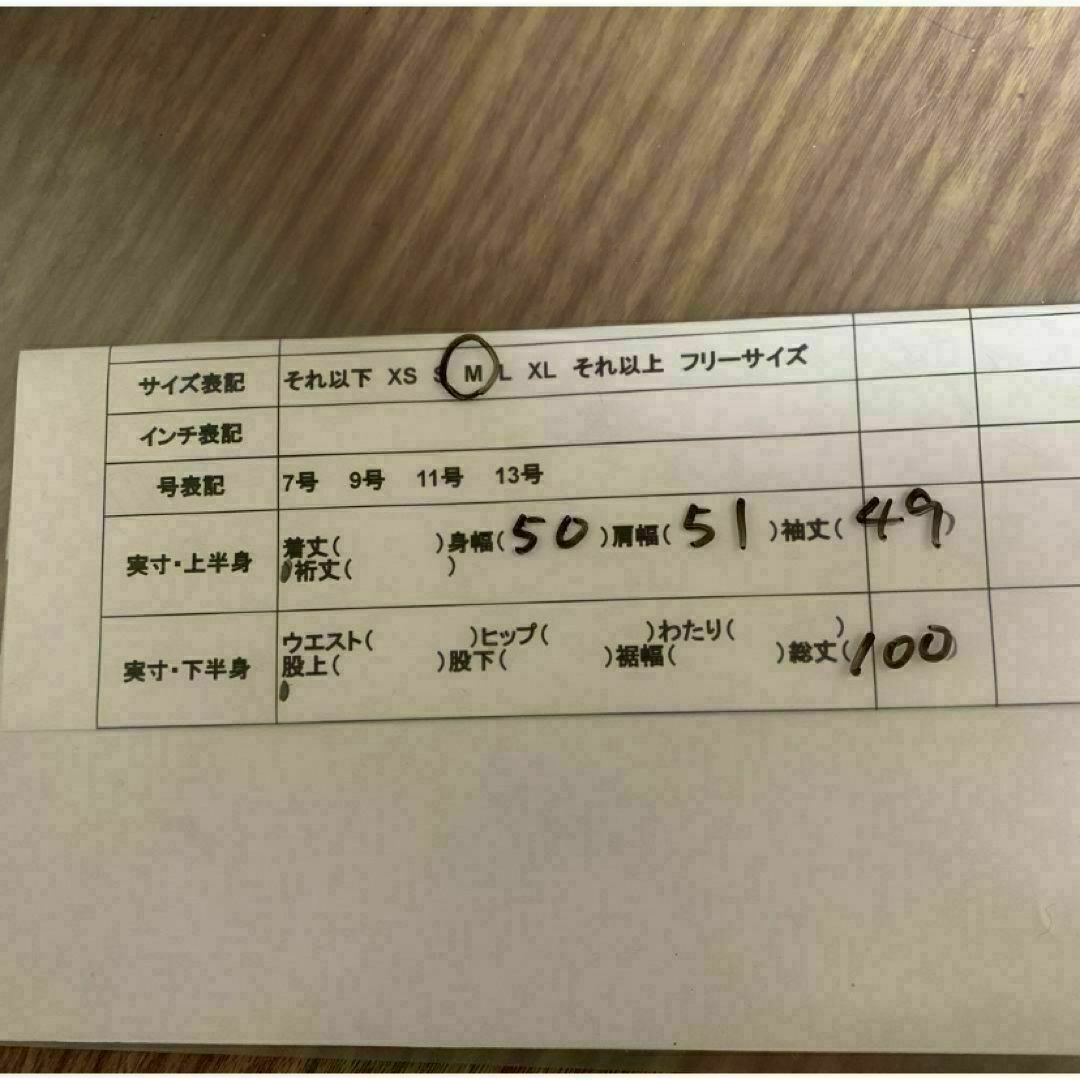 サイズ表記 それ以下 XS S M L XL それ以上 フリーサイズ
インチ表記
号表記 7号 9号 11号 13号
実寸・上半身 着丈( )身幅(50)肩幅(51)袖丈(49)
裄丈( )
実寸・下半身 ウエスト( )ヒップ( )わたり( )
股上( )股下( )裾幅( )総丈(100)